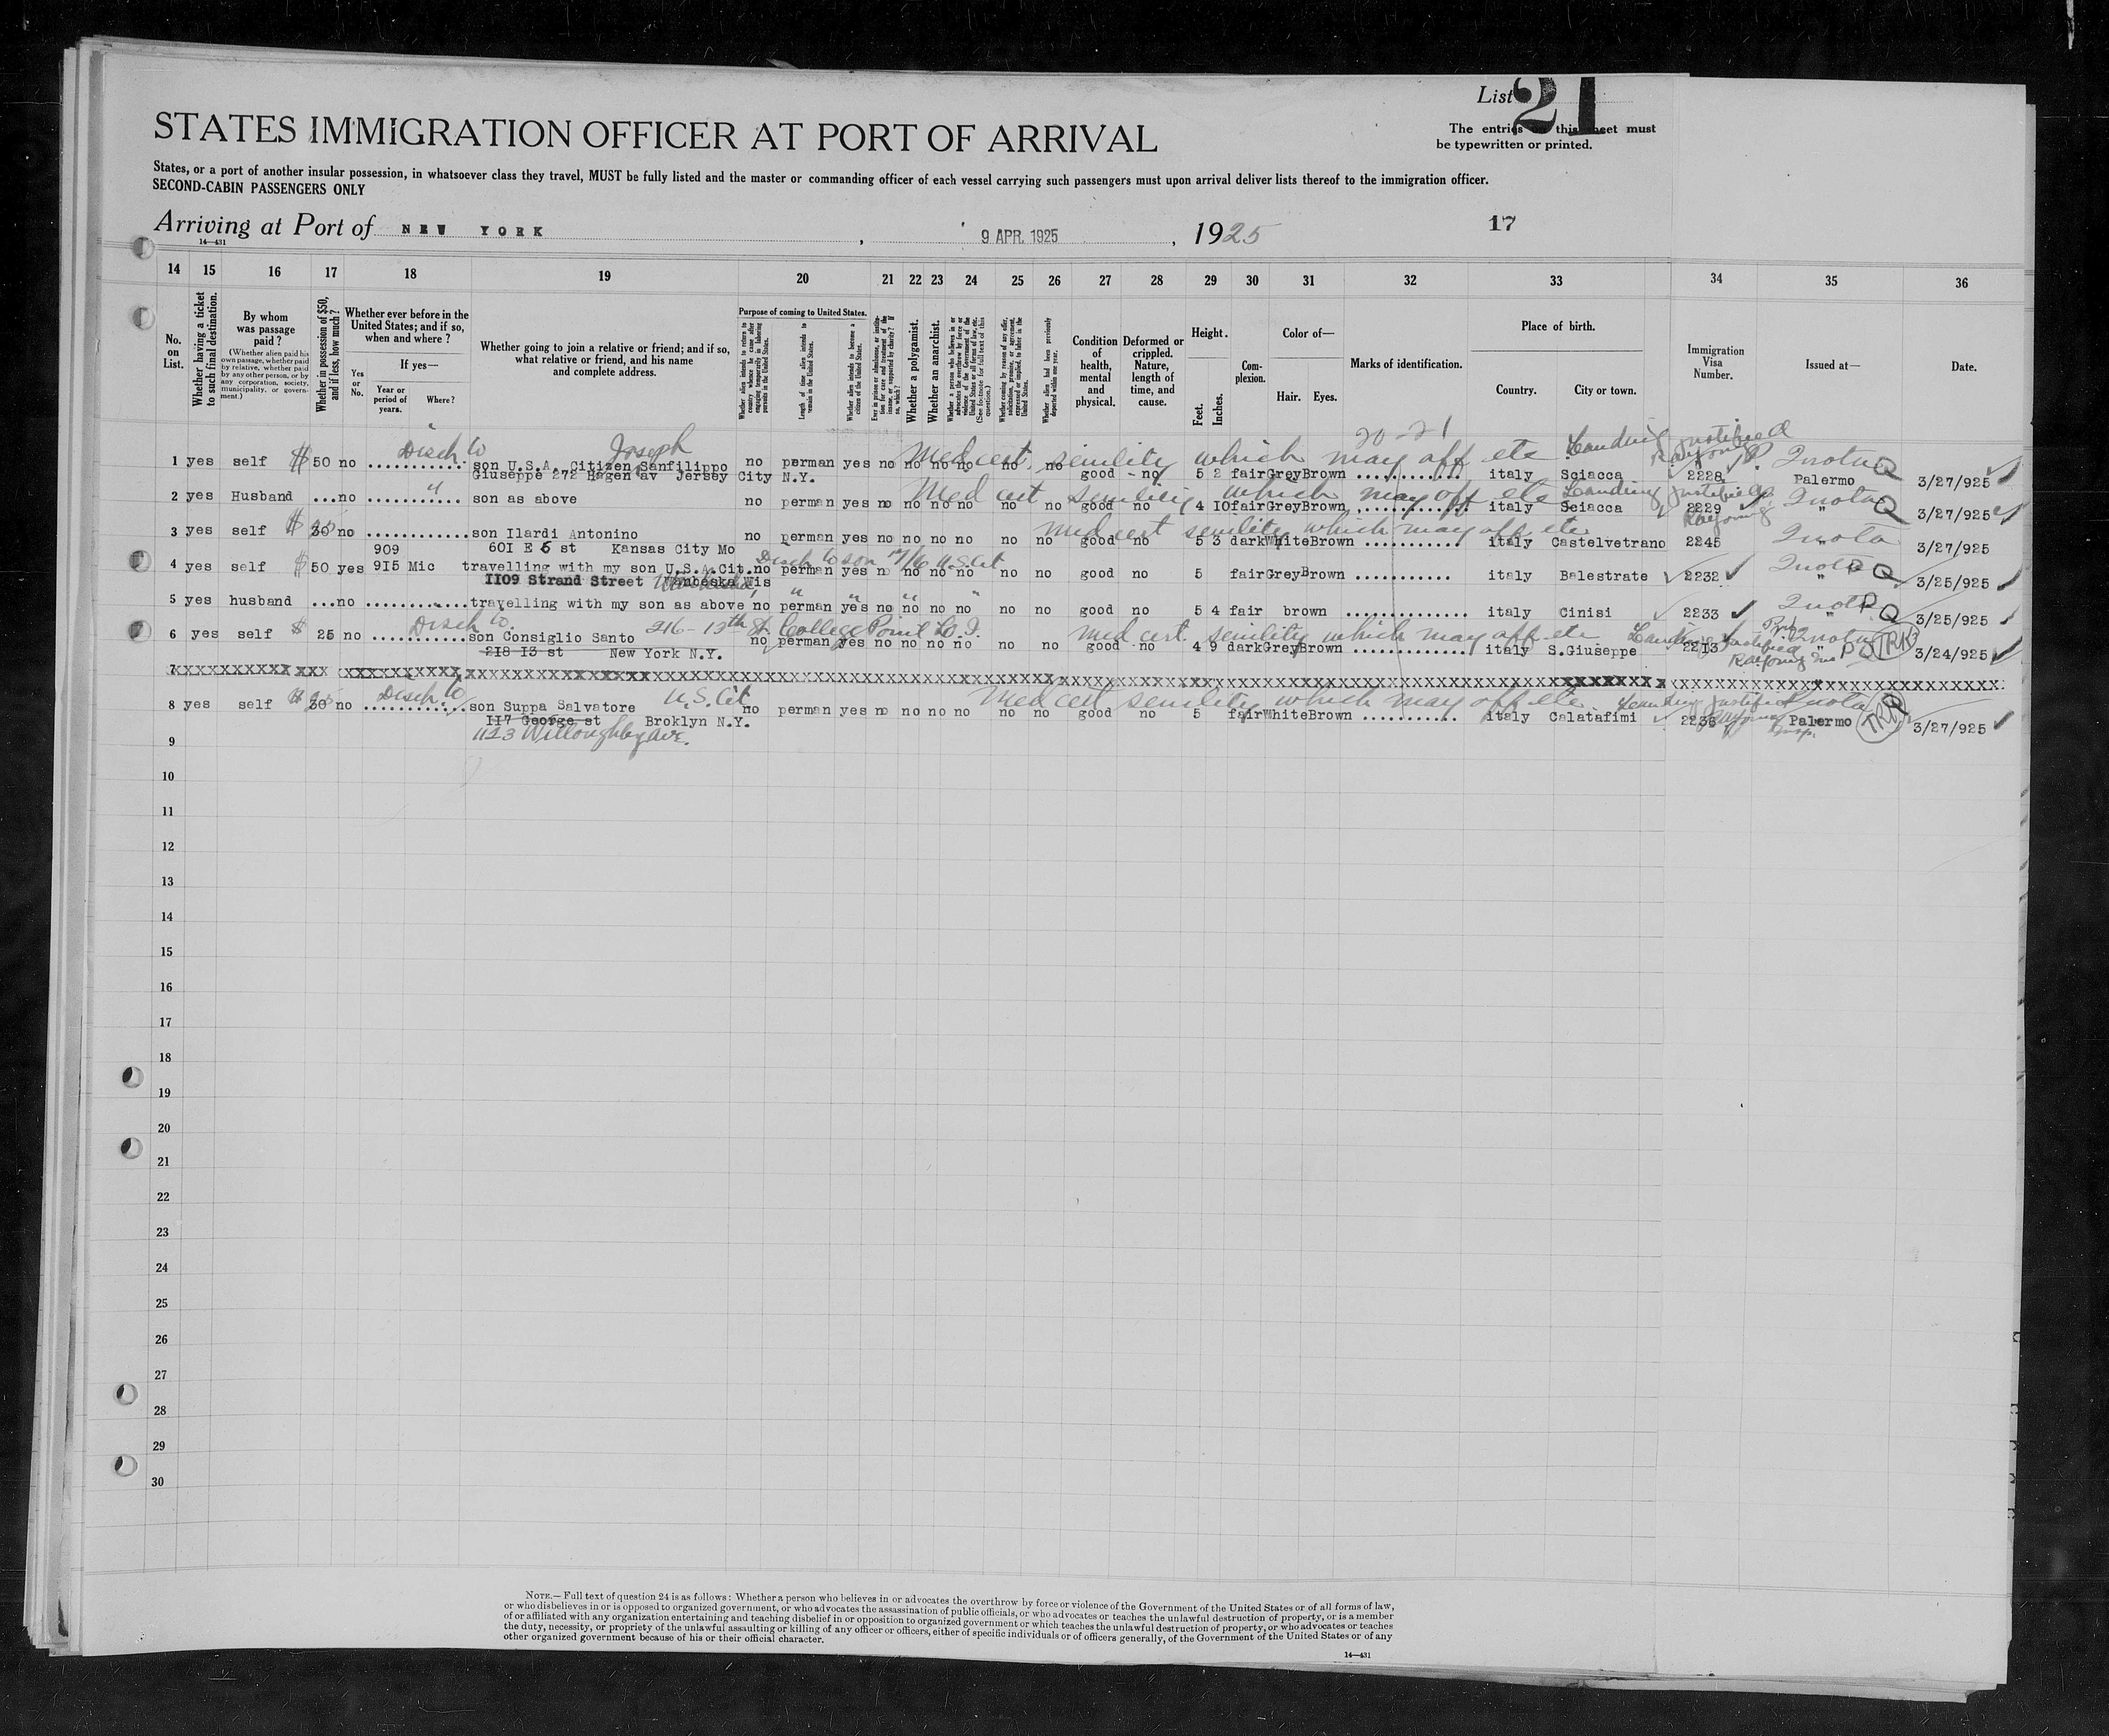 List 21
STATES IMMIGRATION OFFICER AT PORT OF ARRIVAL
The entries on this sheet must
be typewritten or printed.
States, or a port of another insular possession, in whatsoever class they travel, MUST be fully listed and the master or commanding officer of each vessel carrying such passengers must upon arrival deliver lists thereof to the immigration officer.
SECOND-CABIN PASSENGERS ONLY
Arriving at Port of NEW YORK, 9 APR. 1925, 1925 17
14—431
14 15 16 17 18 19 20 21 22 23 24 25 26 27 28 29 30 31 32 33 34 35 36
No. on List.
Whether having a ticket to such final destination.
By whom was passage paid?
(Whether alien paid his own passage, whether paid by relative, whether paid by any other person, or by any corporation, society, municipality, or government.)
Whether in possession of $50, and if less, how much?
Whether ever before in the United States; and if so, when and where?
If yes—
Yes or No.
Year or period of years.
Where?
Whether going to join a relative or friend; and if so, what relative or friend, and his name and complete address.
Purpose of coming to United States.
Whether alien intends to return to country whence he came after engaging temporarily in laboring pursuits in the United States.
Length of time alien intends to remain in the United States.
Whether alien intends to become a citizen of the United States.
Ever in prison or almshouse, or institution for care and treatment of the insane, or supported by charity? If so, which?
Whether a polygamist.
Whether an anarchist.
Whether a person who believes in or advocates the overthrow by force or violence of the Government of the United States or all forms of law, etc. (See footnote for full text of this question.)
Whether coming by reason of any offer, solicitation, promise, or agreement, expressed or implied, to labor in the United States.
Whether alien had been previously deported within one year.
Condition of health, mental and physical.
Deformed or crippled. Nature, length of time, and cause.
Height.
Feet. Inches.
Complexion.
Color of—
Hair. Eyes.
Marks of identification.
Place of birth.
Country. City or town.
Immigration Visa Number.
Issued at—
Date.
20-21
Disch to Joseph Med cert. senility which may aff etc Landing justified
1 yes self $50 no ............ son U.S.A. Citizen Sanfilippo no perman yes no no no no no no good - no 5 2 fair Grey Brown ............ italy Sciacca 2228 Palermo Quota Q 3/27/925
Giuseppe 272 Hagen av Jersey City N.Y.
Med cert senility which may aff etc Landing justified
2 yes Husband ...no ........... son as above no perman yes no no no no no no good no 4 10 fair Grey Brown ............. italy Sciacca 2229 " Quota Q 3/27/925
Med cert senility which may aff etc
3 yes self $ 30 no ............son Ilardi Antonino no perman yes no no no no no no good no 5 3 dark White Brown ........... italy Castelvetrano 2245 " Quota 3/27/925
601 E 5 st Kansas City Mo
909
Disch to son U.S. Cit
4 yes self $50 yes 915 Mic travelling with my son U.S.A.Cit. no perman yes no no no no no no good no 5 fair Grey Brown ........... italy Balestrate 2232 " Quota Q 3/25/925
1109 Strand Street Wis
5 yes husband ...no ............travelling with my son as above no perman yes no no no no no no good no 5 4 fair brown .............. italy Cinisi 2233 " Quota Q 3/25/925
Disch to 216-13th St. College Point L.I. Med cert. senility which may aff etc Landing justified
6 yes self $ 25 no ............son Consiglio Santo no perman yes no no no no no no good no 4 9 dark Grey Brown ............. italy S.Giuseppe 2213 " Quota 3/24/925
218 13 st New York N.Y.
7 xxxxxxxxxxxxxxxxxxxxxxxxxxxxxxxxxxxxxxxxxxxxxxxx
Disch to U.S. Cit Med cert senility which may aff etc Landing justified
8 yes self $ 30 no ............son Suppa Salvatore no perman yes no no no no no no good no 5 fair White Brown ............ italy Calatafimi 2236 Palermo Quota 3/27/925
117 George st Broklyn N.Y.
1123 Willoughby ave.
9
10
11
12
13
14
15
16
17
18
19
20
21
22
23
24
25
26
27
28
29
30
NOTE.—Full text of question 24 is as follows: Whether a person who believes in or advocates the overthrow by force or violence of the Government of the United States or of all forms of law,
or who disbelieves in or is opposed to organized government, or who advocates the assassination of public officials, or who advocates or teaches the unlawful destruction of property, or is a member
of or affiliated with any organization entertaining and teaching disbelief in or opposition to organized government or which teaches the unlawful destruction of property, or who advocates or teaches
the duty, necessity, or propriety of the unlawful assaulting or killing of any officer or officers, either of specific individuals or of officers generally, of the Government of the United States or of any
other organized government because of his or their official character.
14—431